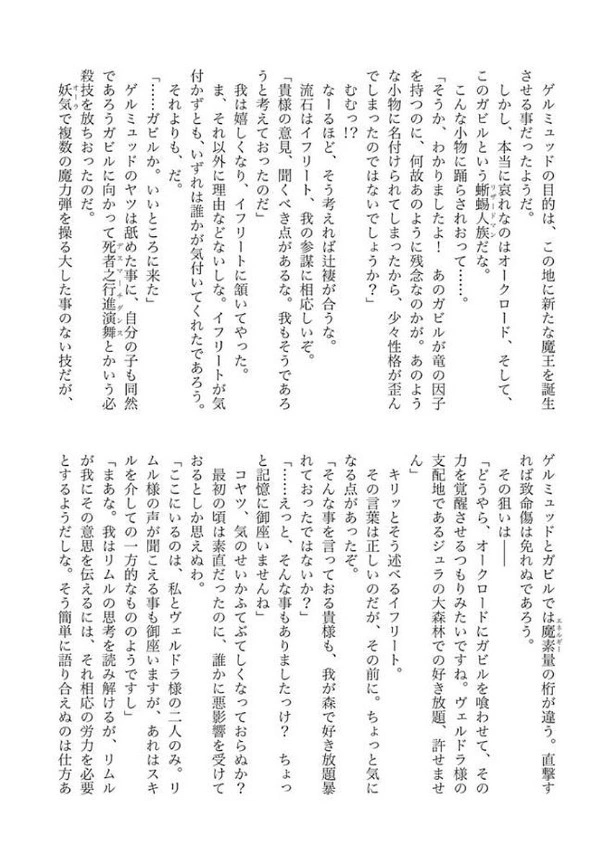 ゲルミュッドの目的は、この地に新たな魔王を誕生
させる事だったようだ。
　しかし、本当に哀れなのはオークロード、そして、
このガビルという蜥蜴人族リザードマンだな。
　こんな小物に踊らされおって……。
「そうか、わかりましたよ！　あのガビルが竜の因子
を持つのに、何故あのように残念なのかが。あのよう
な小物に名付けられてしまったから、少々性格が歪ん
でしまったのではないでしょうか？」
　むむっ!?
　なーるほど、そう考えれば辻褄が合うな。
　流石はイフリート、我の参謀に相応しいぞ。
「貴様の意見、聞くべき点があるな。我もそうであろ
うと考えておったのだ」
　我は嬉しくなり、イフリートに頷いてやった。
　ま、それ以外に理由などないしな。イフリートが気
付かずとも、いずれは誰かが気付いてくれたであろう。
　それよりも、だ。
「……ガビルか。いいところに来た」
　ゲルミュッドのヤツは舐めた事に、自分の子も同然
であろうガビルに向かって死者之行進演舞デスマーチダンスとかいう必
殺技を放ちおったのだ。
　妖気オーラで複数の魔力弾を操る大した事のない技だが、
ゲルミュッドとガビルでは魔素量エネルギーの桁が違う。直撃す
れば致命傷は免れぬであろう。
　その狙いは――
「どうやら、オークロードにガビルを喰わせて、その
力を覚醒させるつもりみたいですね。ヴェルドラ様の
支配地であるジュラの大森林での好き放題、許せませ
ん」
　キリッとそう述べるイフリート。
　その言葉は正しいのだが、その前に。ちょっと気に
なる点があったぞ。
「そんな事を言っておる貴様も、我が森で好き放題暴
れておったではないか？」
「……えっと、そんな事もありましたっけ？　ちょっ
と記憶に御座いませんね」
　コヤツ、気のせいかふてぶてしくなっておらぬか？
　最初の頃は素直だったのに、誰かに悪影響を受けて
おるとしか思えぬわ。
「ここにいるのは、私とヴェルドラ様の二人のみ。リ
ムル様の声が聞こえる事も御座いますが、あれはスキ
ルを介しての一方的なもののようですし」
「まあな。我はリムルの思考を読み解けるが、リムル
が我にその意思を伝えるには、それ相応の労力を必要
とするようだしな。そう簡単に語り合えぬのは仕方あ